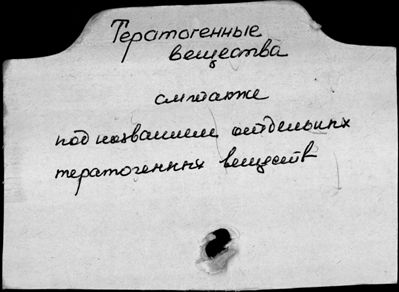 Тератогенные
вещества
см. также
под названием отдельных
тератогенных веществ